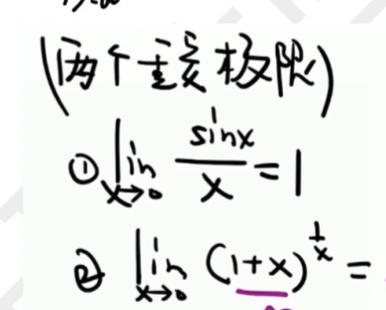 (两个重要极限)
① lim x→0 sinx/x = 1
② lim x→0 (1+x)^(1/x) =